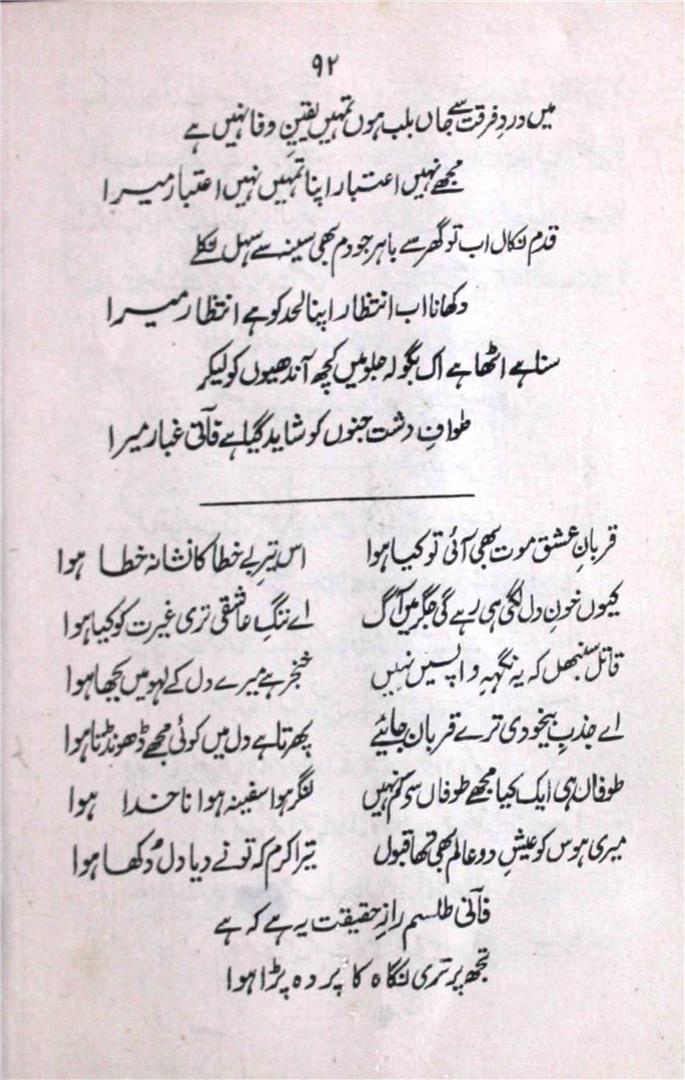 ۹۲
میں دردِ فرقت سے جاں بلب ہوں تمہیں یقینِ وفا نہیں ہے
مجھے نہیں اعتبار اپنا تمہیں نہیں اعتبار میرا
قدم نکال اب تو گھر سے باہر جو دم بھی سینہ سے سہل نکلے
دکھا نا اب انتظار اپنا لحد کو ہے انتظار میرا
سنا ہے اٹھا ہے اک بگولہ جلو میں کچھ آندھیوں کو لیکر
طوافِ دشت جنوں کو شاید گیا ہے فانی غبار میرا
قربانِ عشق موت بھی آئی تو کیا ہوا اس تیرِ بے خطا کا نشانہ خطا ہوا
کیوں خونِ دل لگی ہی رہے گی جگر میں آگ اے ننگِ عاشقی تری غیرت کو کیا ہوا
قاتل سنبھل کہ یہ نگہہِ واپسیں نہیں خنجر ہے میرے دل کے لہو میں بجھا ہوا
اے جذبِ بیخودی ترے قربان جائیے پھرتا ہے دل میں کوئی مجھے ڈھونڈتا ہوا
طوفاں ہی ایک کیا مجھے طوفاں سو کم نہیں لنگر ہوا سفینہ ہوا ناخدا ہوا
میری ہوس کو عیشِ دو عالم بھی تھا قبول تیرا کرم کہ تو نے دیا دل دُکھا ہوا
فانی طلسم رازِ حقیقت یہ ہے کہ ہے
تجھ پر تری نگاہ کا پردہ پڑا ہوا